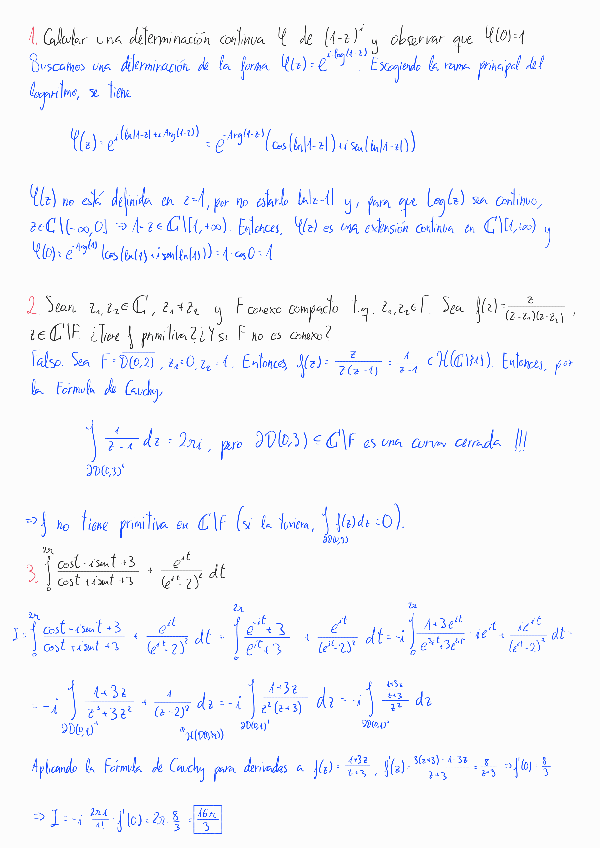 1. Calcular una determinación continua φ de (1-z)^i y observar que φ(0)=1
Buscamos una determinación de la forma φ(z)=e^{i log(1-z)}. Escogiendo la rama principal del
logaritmo, se tiene
φ(z)=e^{i(ln|1-z|+i Arg(1-z))}=e^{-Arg(1-z)}(cos(ln|1-z|)+i sen(ln|1-z|))
φ(z) no está definida en z=1, por no estarlo ln|z-1| y, para que Log(z) sea continuo,
z∈ℂ\(-∞,0] ⇒ 1-z∈ℂ\[1,+∞). Entonces, φ(z) es una extensión continua en ℂ\[1,∞) y
φ(0)=e^{-Arg(1)}(cos(ln(1))+i sen(ln(1)))=1·cos0=1
2. Sean z₁,z₂∈ℂ, z₁≠z₂ y F conexo compacto t.q. z₁,z₂∈F. Sea f(z)=z/((z-z₁)(z-z₂)),
z∈ℂ\F. ¿Tiene f primitiva? ¿Y si F no es conexo?
Falso. Sea F=D(0,2), z₁=0, z₂=1. Entonces f(z)=z/(z(z-1))=1/(z-1)∈H(ℂ\{1}). Entonces, por
la Fórmula de Cauchy,
∫_{∂D(0,3)⁺} 1/(z-1) dz=2πi, pero ∂D(0,3)⊂ℂ\F es una curva cerrada !!!
⇒ f no tiene primitiva en ℂ\F (si la tuviera, ∫_{∂D(0,3)} f(z)dz=0).
3. ∫₀^{2π} (cost-isent+3)/(cost+isent+3) + e^{it}/(e^{it}-2)² dt
I=∫₀^{2π} (cost-isent+3)/(cost+isent+3) + e^{it}/(e^{it}-2)² dt=∫₀^{2π} (e^{-it}+3)/(e^{it}+3) + e^{it}/(e^{it}-2)² dt=-i∫₀^{2π} (1+3e^{it})/(e^{3it}+3e^{2it})·ie^{it}+ie^{it}/(e^{it}-2)² dt=
=-i∫_{∂D(0,1)⁺} (1+3z)/(z³+3z²)+1/(z-2)² dz=-i∫_{∂D(0,1)⁺} (1+3z)/(z²(z+3)) dz=-i∫_{∂D(0,1)⁺} ((1+3z)/(z+3))/z² dz
Aplicando la Fórmula de Cauchy para derivadas a f(z)=(1+3z)/(z+3), f'(z)=(3(z+3)-1-3z)/(z+3)=8/(z+3) ⇒ f'(0)=8/3
⇒ I=-i 2πi/1! f'(0)=2π·8/3=16π/3